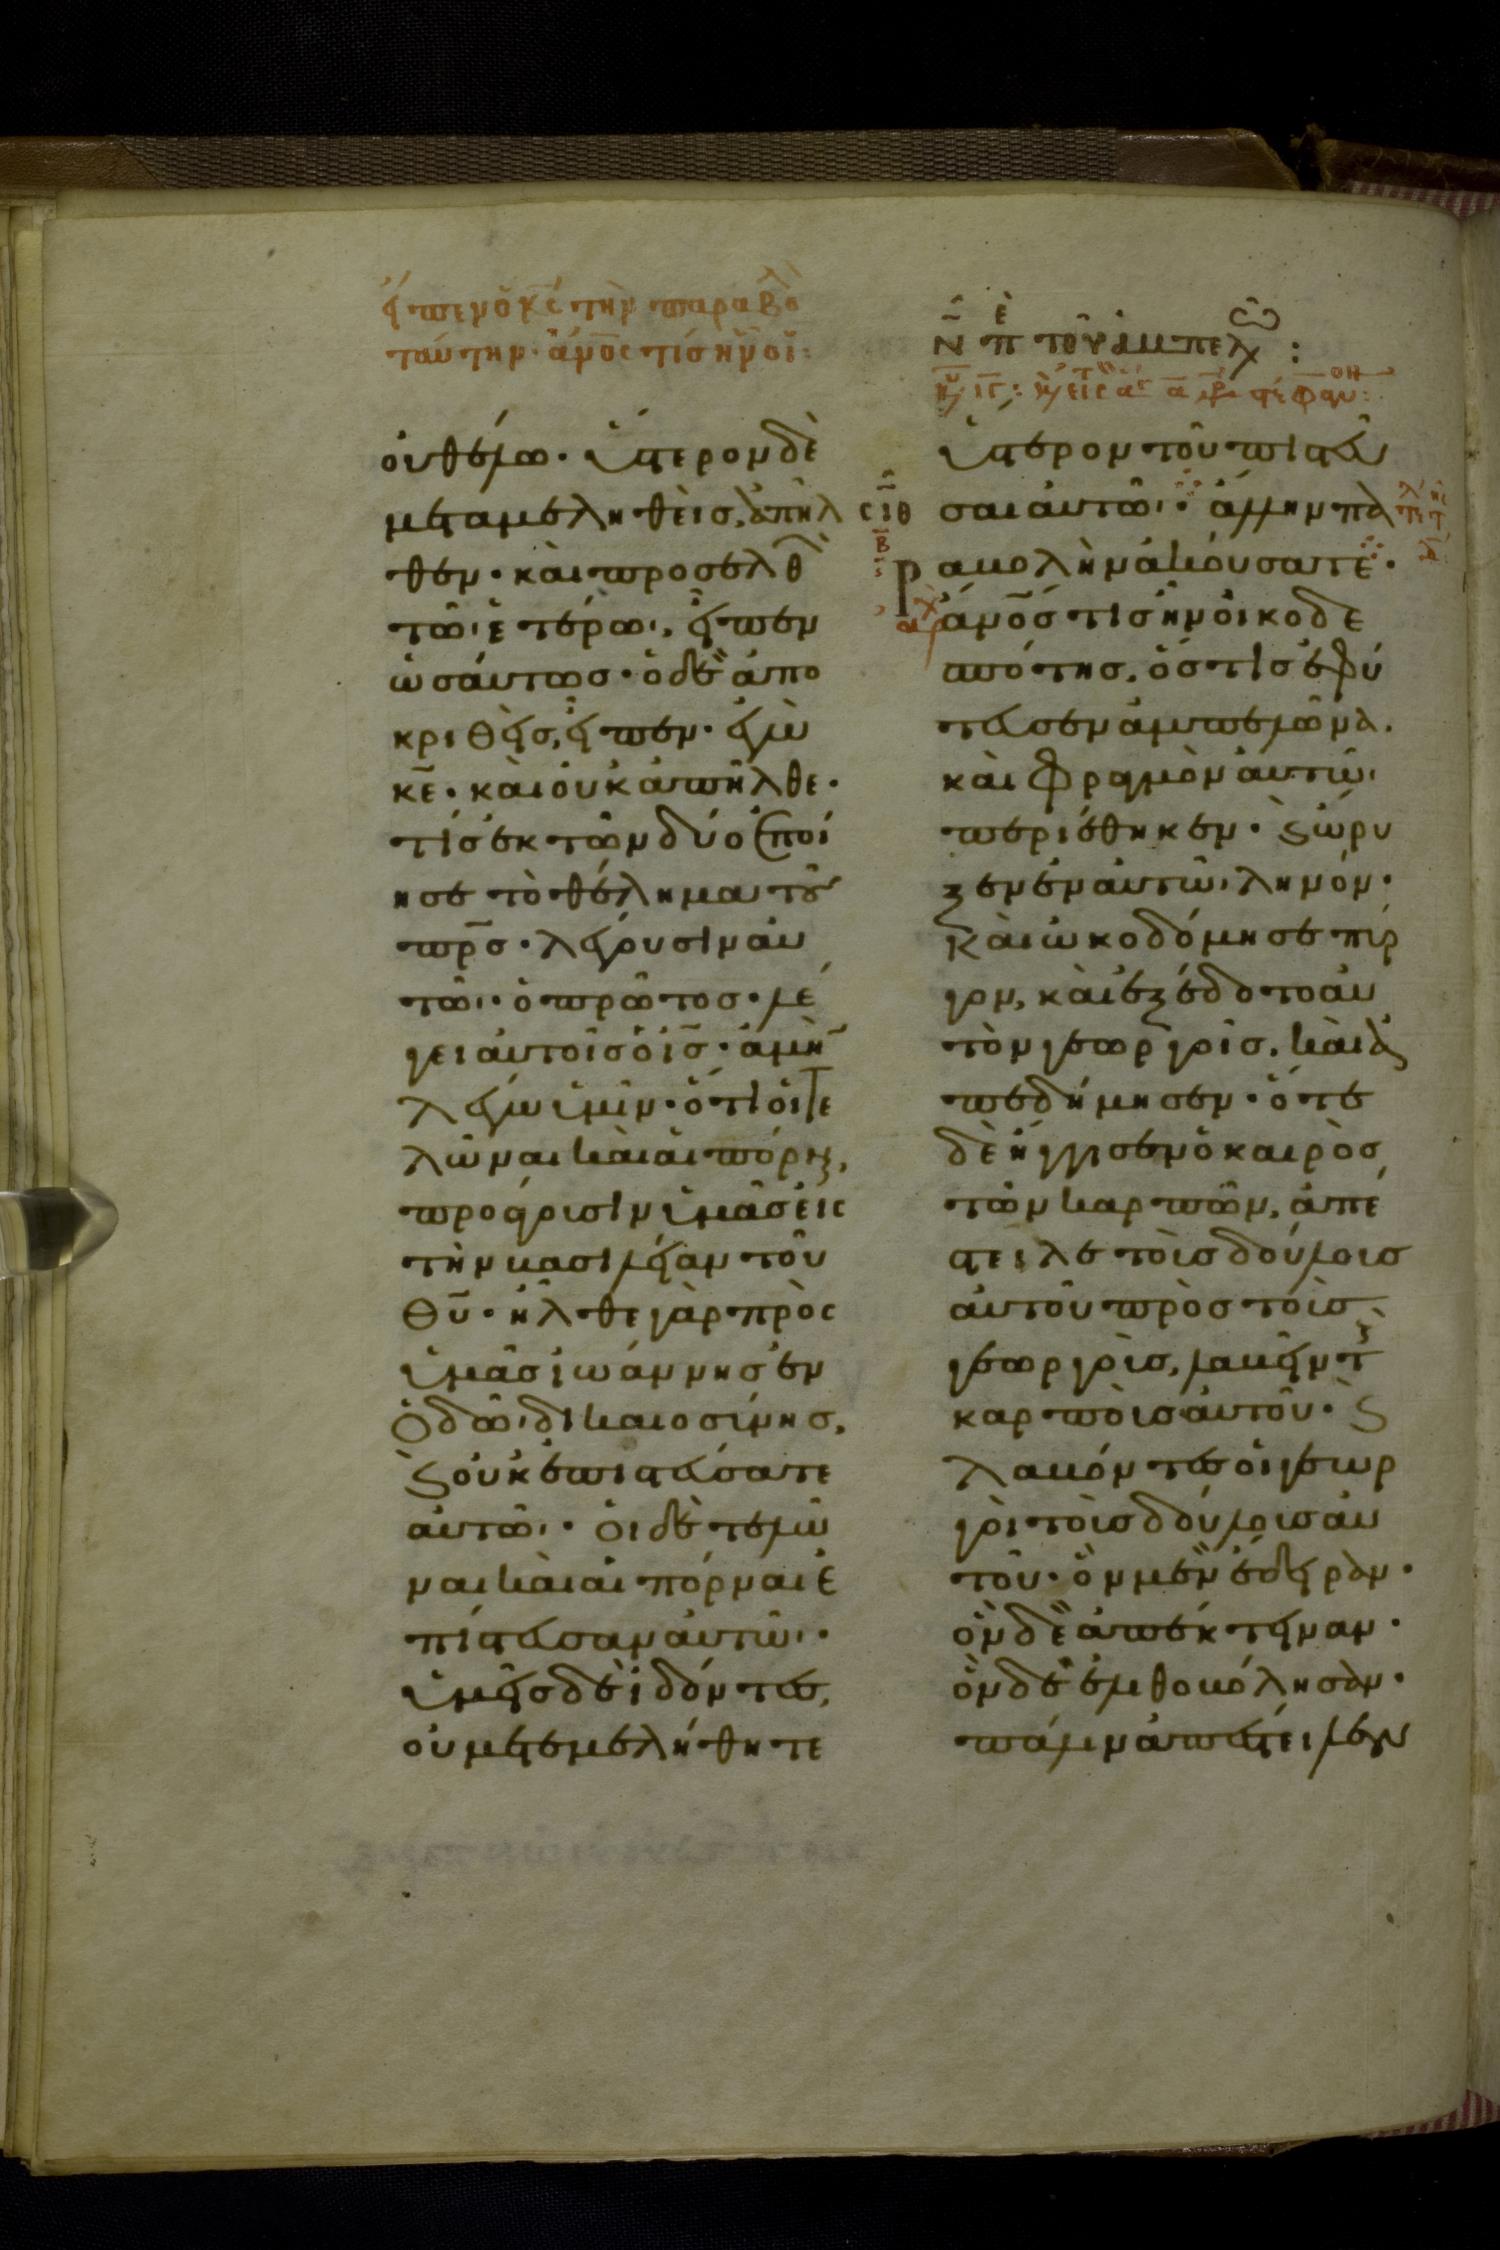 εἶπεν ὁ κ̅ς τὴν παραβολ
ταύτην· ἄν̅ος τίς ἦν οἰ:
οὐ θέλω· ὕστερον δὲ
μεταμεληθεὶς, ἀπῆλ
θεν· καὶ προσελθ
τῶ ἑτέρω, εἶπεν
ὡσάυτως· ὁ δὲ ἀπο
κριθεὶς, εἶπεν· ἐγὼ
κ̅ε· καὶ οὐκ ἀπῆλθε·
τίς ἐκ τῶν δύο ἐποί
ησε τὸ θέλημα τοῦ
π̅ρ̅ς· λέγουσιν αυ
τῶ· ὁ πρῶτος· λέ
γει αυτοῖς ὁ ι̅ς· ἀμὴν
λέγω ὑμῖν· ὅτι οἱ τε
λῶναι καὶ αἱ πόρναι,
προάγουσιν ὑμᾶς εἰς
τὴν βασιλείαν τοῦ
θ̅υ· ἦλθε γὰρ πρὸς
ὑμᾶς ἰωάννης ἐν
ὁδῶ δικαιοσύνης,
καὶ οὐκ ἐπιστεύσατε
αυτῶ· οἱ δὲ τελῶ
ναι καὶ αἱ πόρναι ἐ
πίστευσαν αυτῶ·
ὑμεῖς δὲ ἰδόντες,
οὐ μετεμελήθητε
ν̅ε̅ π τοῦ ἀμπελῶ:
σιθ
ὕστερον τοῦ πιστεῦ
σαι αυτῶ· ἄλλην πα
ραβολὴν ἀκούσατε·
ἄν̅ος τὶς ἦν οἰκοδε
σπότης, ὅστις ἐφύ
τευσεν ἀμπελῶνα.
καὶ φραγμὸν αυτῶ
περιέθηκεν· καὶ ὤρυ
ξεν ἐν αυτῶ ληνόν·
καὶ ὠκοδόμησε πύρ
γον, καὶ ἐξέδοτο αυ
τὸν γεωργοῖς. καὶ ἀ
πεδήμησεν· ὅτε
δὲ ἤγγισεν ὁ καιρὸς
τῶν καρπῶν, ἀπέ
στειλε τοὺς δούλους
αυτοῦ πρὸς τοὺς
γεωργοὺς, λαβεῖν τοὺς
καρποὺς αυτοῦ· καὶ
λαβόντες οἱ γεωρ
γοὶ τοὺς δούλους αυ
τοῦ· ὃν μὲν ἔδειραν·
ὃν δὲ ἀπέκτειναν·
ὃν δὲ ἐλιθοβόλησαν·
πάλιν ἀπέστειλεν